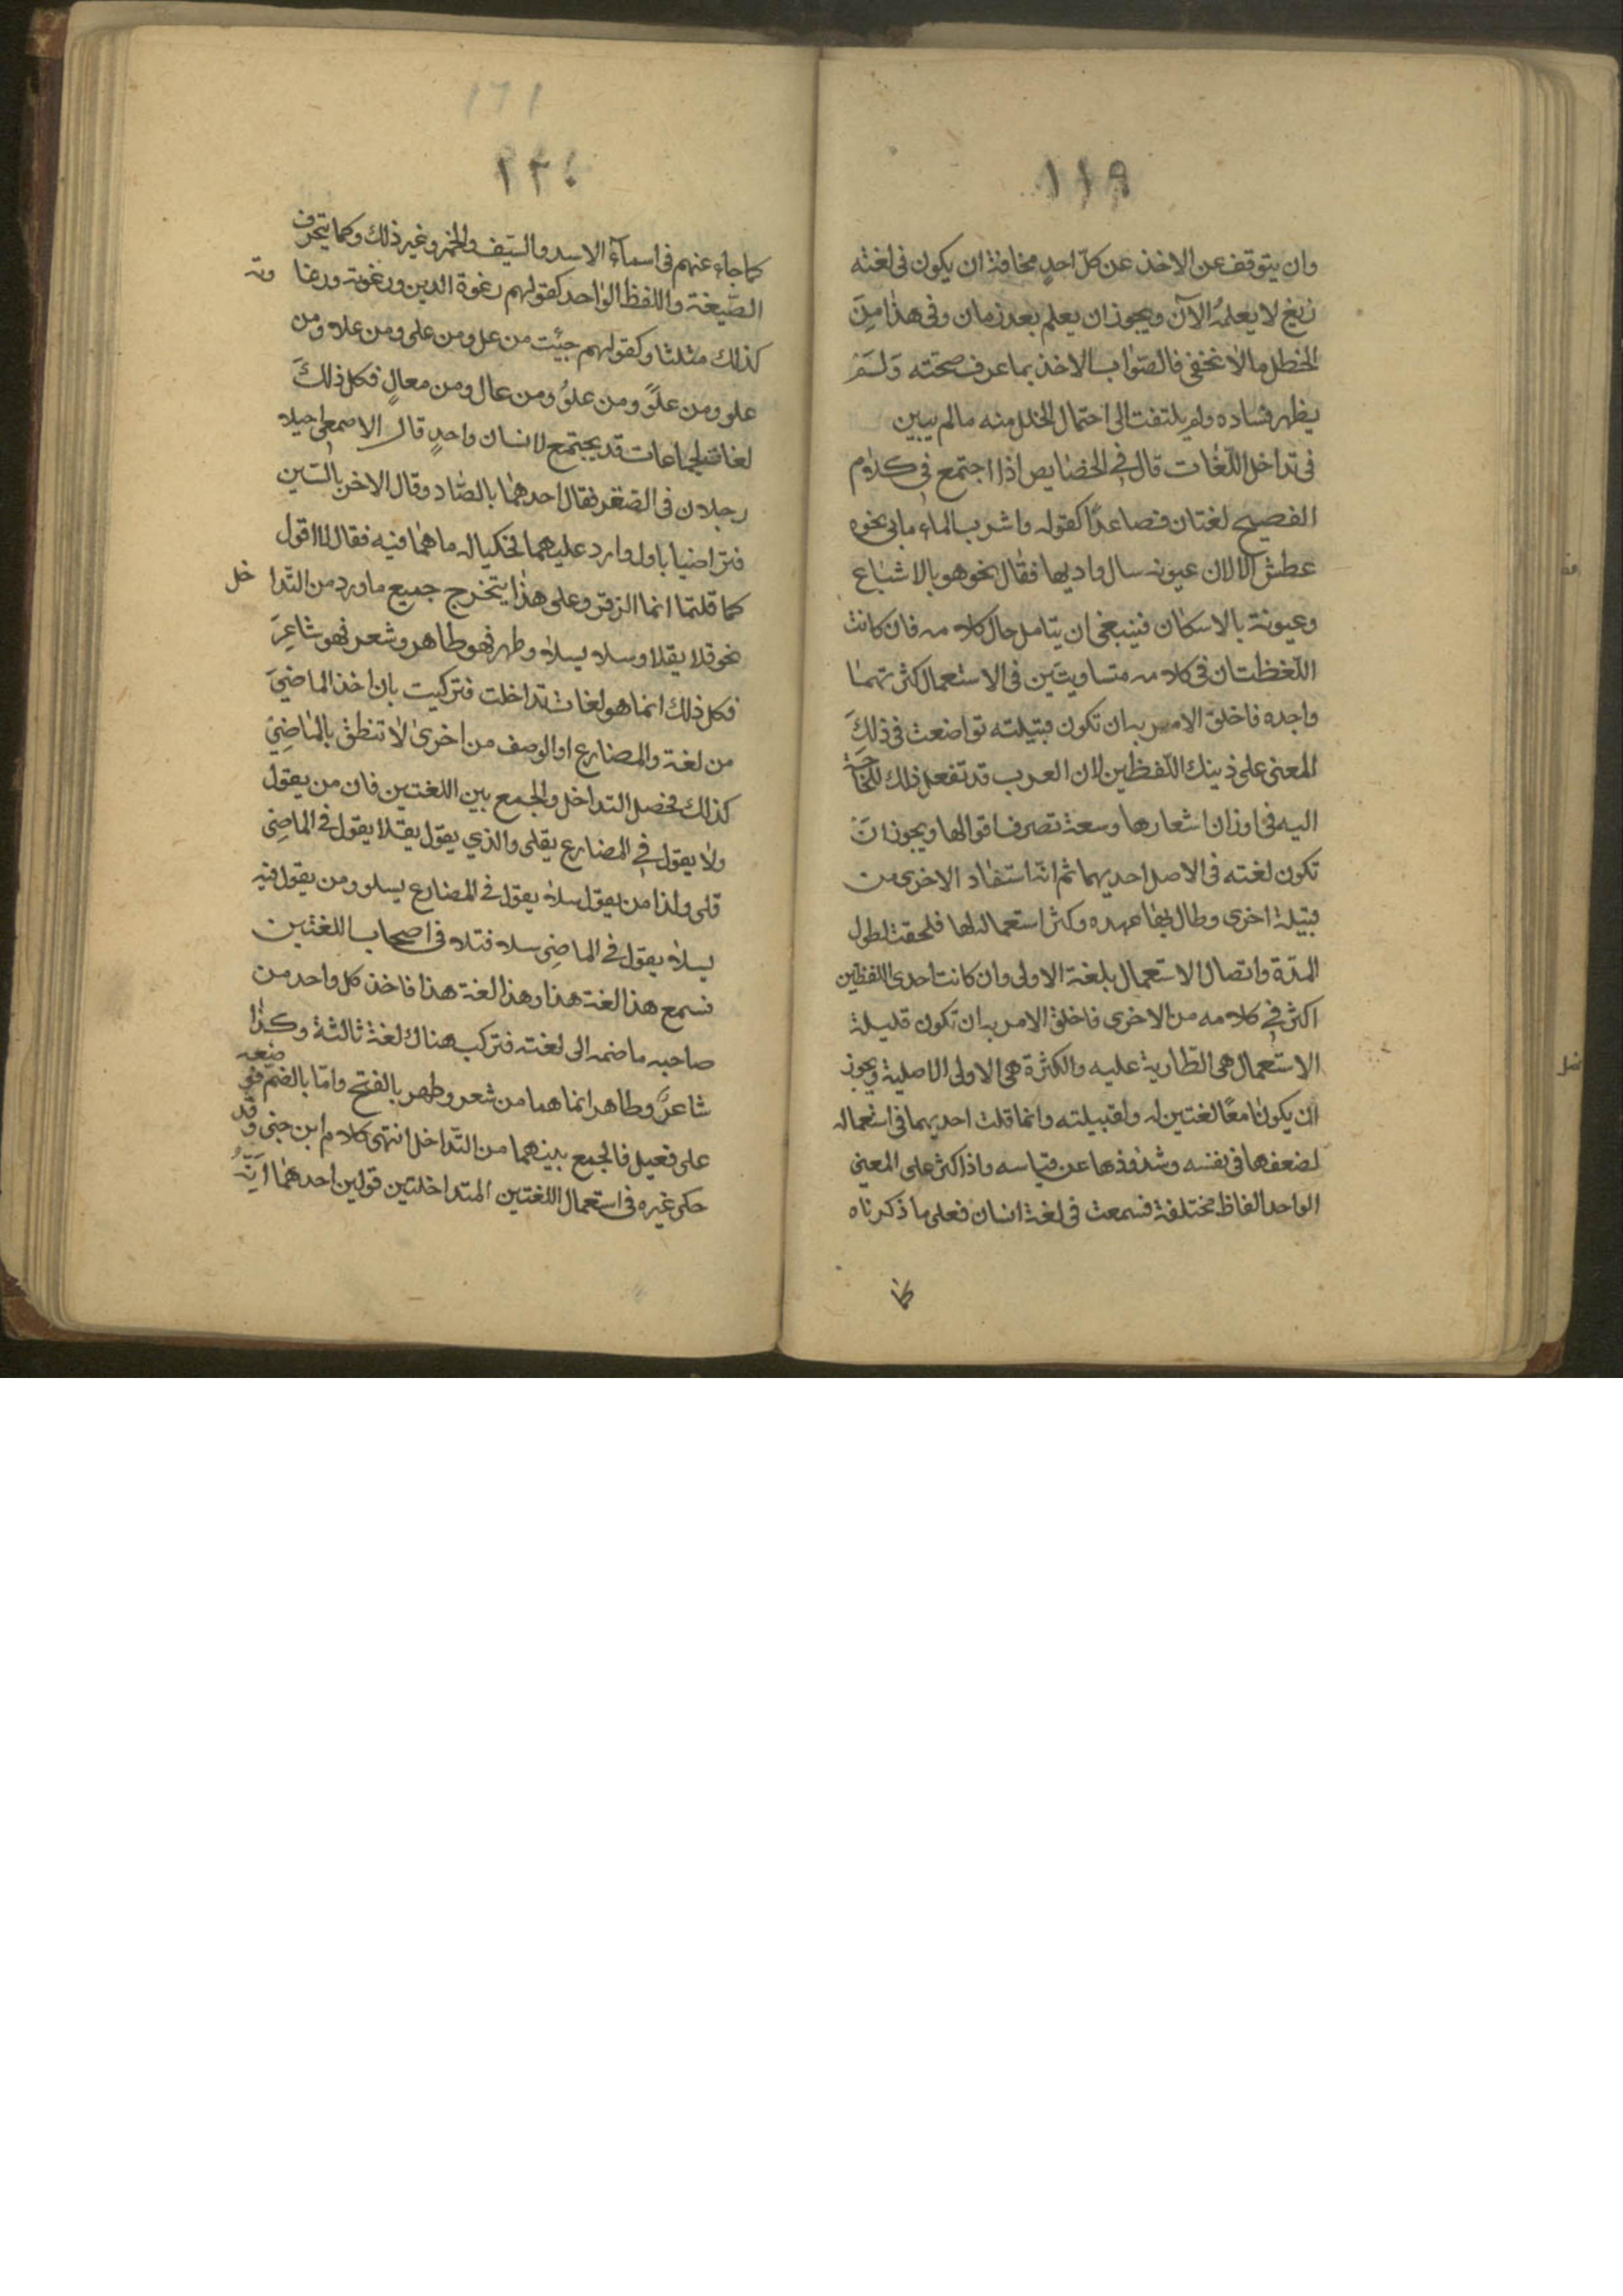 ١١٩
وان يتوقف عن الاخذ عن كلّ احدٍ مخافة ان يكون فى لغته
زيغ لا يعلمُ الآن ويجوز ان يعلم بعد زمان وفى هذا مِنَ
الخطل ما لا يخفى فالصّواب الاخذ بما عرف صحته وَلَمْ
يظهر فساده ولم يلتفت الى احتمال الخلل منه مالم يبين
فى تداخل اللّغات قال فى الخصايص اذا اجتمع فى كلام
الفصيح لغتان فصاعدًا كقوله واشرب الماء مابى نحوه
عطش الا لان عيونه سال واديها فقال نحوهو بالاشباع
وعيونة بالاسكان فينبغى ان يتامل حال كلامه فان كانت
اللّفظتان فى كلامه متساويتين فى الاستعمال كثرتهما
واحده فاخلق الامر به ان تكون قبيلته تواضعت فى ذلكَ
المعنى على ذينك اللّفظين لان العرب قد تفعل ذلك للحاجة
اليه فى اوزان اشعارها وسعة تصرف اقوالها ويجوز انَ
تكون لغته فى الاصل احديهما ثم انه استفاد الاخرى من
قبيلة اخرى وطال بها عهده وكثر استعماله لها فلحقت لطول
المدّة واتصال الاستعمال بلغة الاولى وان كانت احدى اللفظين
اكثر فى كلامه من الاخرى فاخلق الامر به ان تكون قليلة
الاستعمال هى الطارية عليه والكثرة هى الاولى الاصلية ويجوز
ان يكونا معًا لغتين له ولقبيلته وانما قلت احديهما فى استعماله
لضعفها فى نفسه وشذوذها عن قياسه واذا كثر على المعنى
الواحد الفاظ مختلفة فسمعت فى لغة انسان فعلى ما ذكرناه
١٦١
١٢٠
كما جاء عنهم فى اسمآء الاسد والسّيف والخمر وغير ذلك وكما يتحرف
الصّيغة واللفظ الواحد كقولهم رغوة اللبن ورغوته ورغا وته
كذلك مثلثا وكقولهم جئيت من عل ومن على ومن علا ومن
علو ومن علوً ومن علوُ ومن عال ومن معالٍ فكل ذلكَ
لغات لجماعات قد يجتمع لانسان واحدٍ قال الاصمعى
رجلان فى الصّقر فقال احدهما بالصّاد وقال الاخر بالسّين
فتراضيا باول وارد عليهما فحكيا له ما هما فيه فقال لا اقول
كما قلتما انما الزقر وعلى هذا يتخرج جميع ما ورد من التّدا خل
نحو قلا يقلا وسلا يسلا وطهر فهو طاهر وشعر فهو شاعِرَ
فكل ذلك انما هو لغات تداخلت فتركبت بان اخذ الماضىَ
من لغة والمضارع او الوصف من اخرى لا تنطق بالماضِىَ
كذلك فحصل التداخل والجمع بين اللغتين فان من يقول
ولا يقول فى المضارع يقلى والذي يقول يقلا يقول فى الماضِى
قلى ولذا من يقول سلا يقول فى المضارع يسلو ومن يقول فيه
يسلا يقول فى الماضِى سلا فتلا فى اصحاب اللغتين
فسمع هذا لغة هذا وهذا لغة هذا فاخذ كل واحد من
صاحبه ما ضمه الى لغته فتركب هناك لغة ثالثة وكذا
شاعرٌ وطاهر انما هما من شعر وطهر بالفتح وامّا بالضمّ فى
على فعيل فالجمع بينهما من التّداخل انتهى كلام ابن جنى وقد
حكى غيره فى استعمال اللغتين المتداخلتين قولين احدهما اَنّهُ